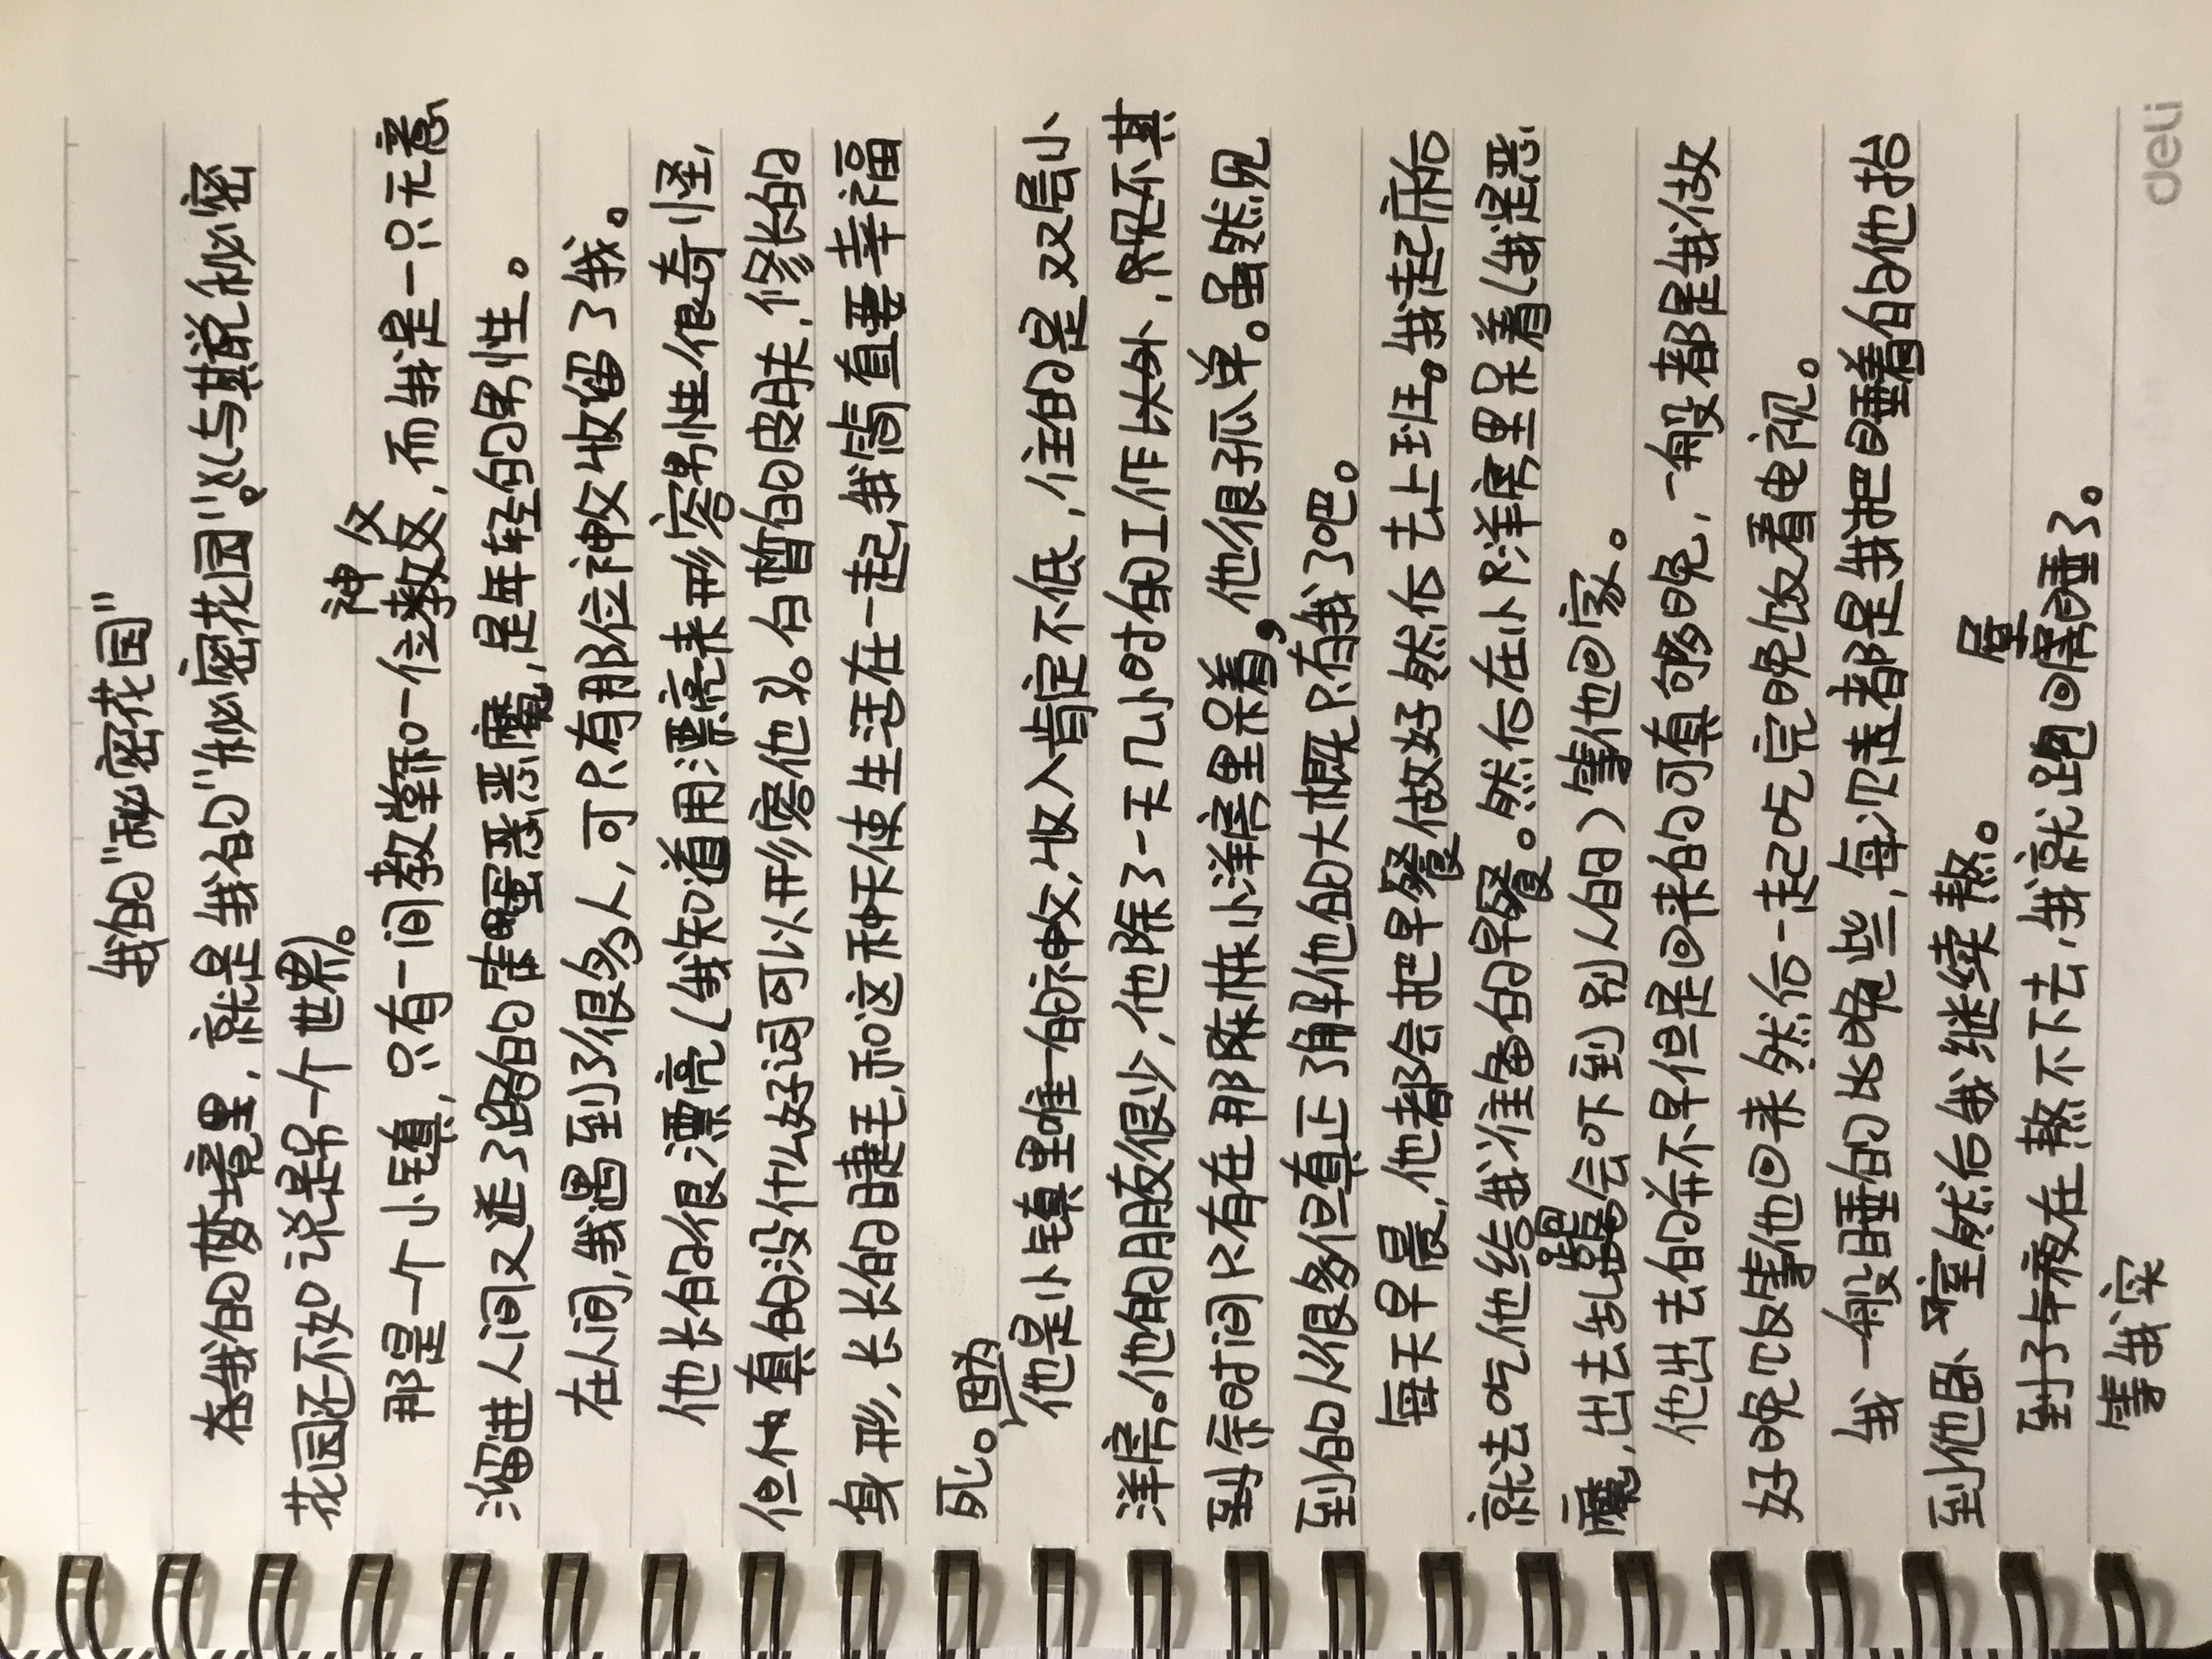 我的"秘密花园"
在我的梦境里，就是我的"秘密花园"。以与其说秘密
花园还不如说是另一个世界）。
神父
那是一个小镇，只有一间教堂和一位教父，而我是一只无意
溜进人间又迷了路的笨蛋恶魔，是年轻的男性。
在人间，我遇到了很多人，可只有那位神牧收留了我。
他长的很漂亮（我知道用漂亮来形容男性很奇怪，
但他真的没什么好词可以形容他了。白皙的皮肤，修长的
身形，长长的睫毛，和这种天使生活在一起我简直要幸福
死。因为
他是小镇里唯一的神牧，收入肯定不低，住的是双层小
洋房。他的朋友很少，他除了一天几小时的工作以外，只见不其
到余时间只有在那陈林小洋房里呆着，他很孤单。虽然见
到的人很多但真正了解他的大概只有我了吧。
每天早晨，他都会把早餐做好然后去上班。我起床后
就去吃他给我准备的早餐。然后在小只洋房里呆着（我是恶
魔，出去乱晃会吓到别人的）等他回家。
他出去的并不早但是回来的可真够晚，一般都是我做
好晚饭等他回来然后一起吃完晚饭看电视。
我一般睡的比晚些，每次这都是我把睡着的他抬
到他卧室然后我继续熬。
屋
到了午夜在熬不下去，我就跑回房睡了。
等我实
deli